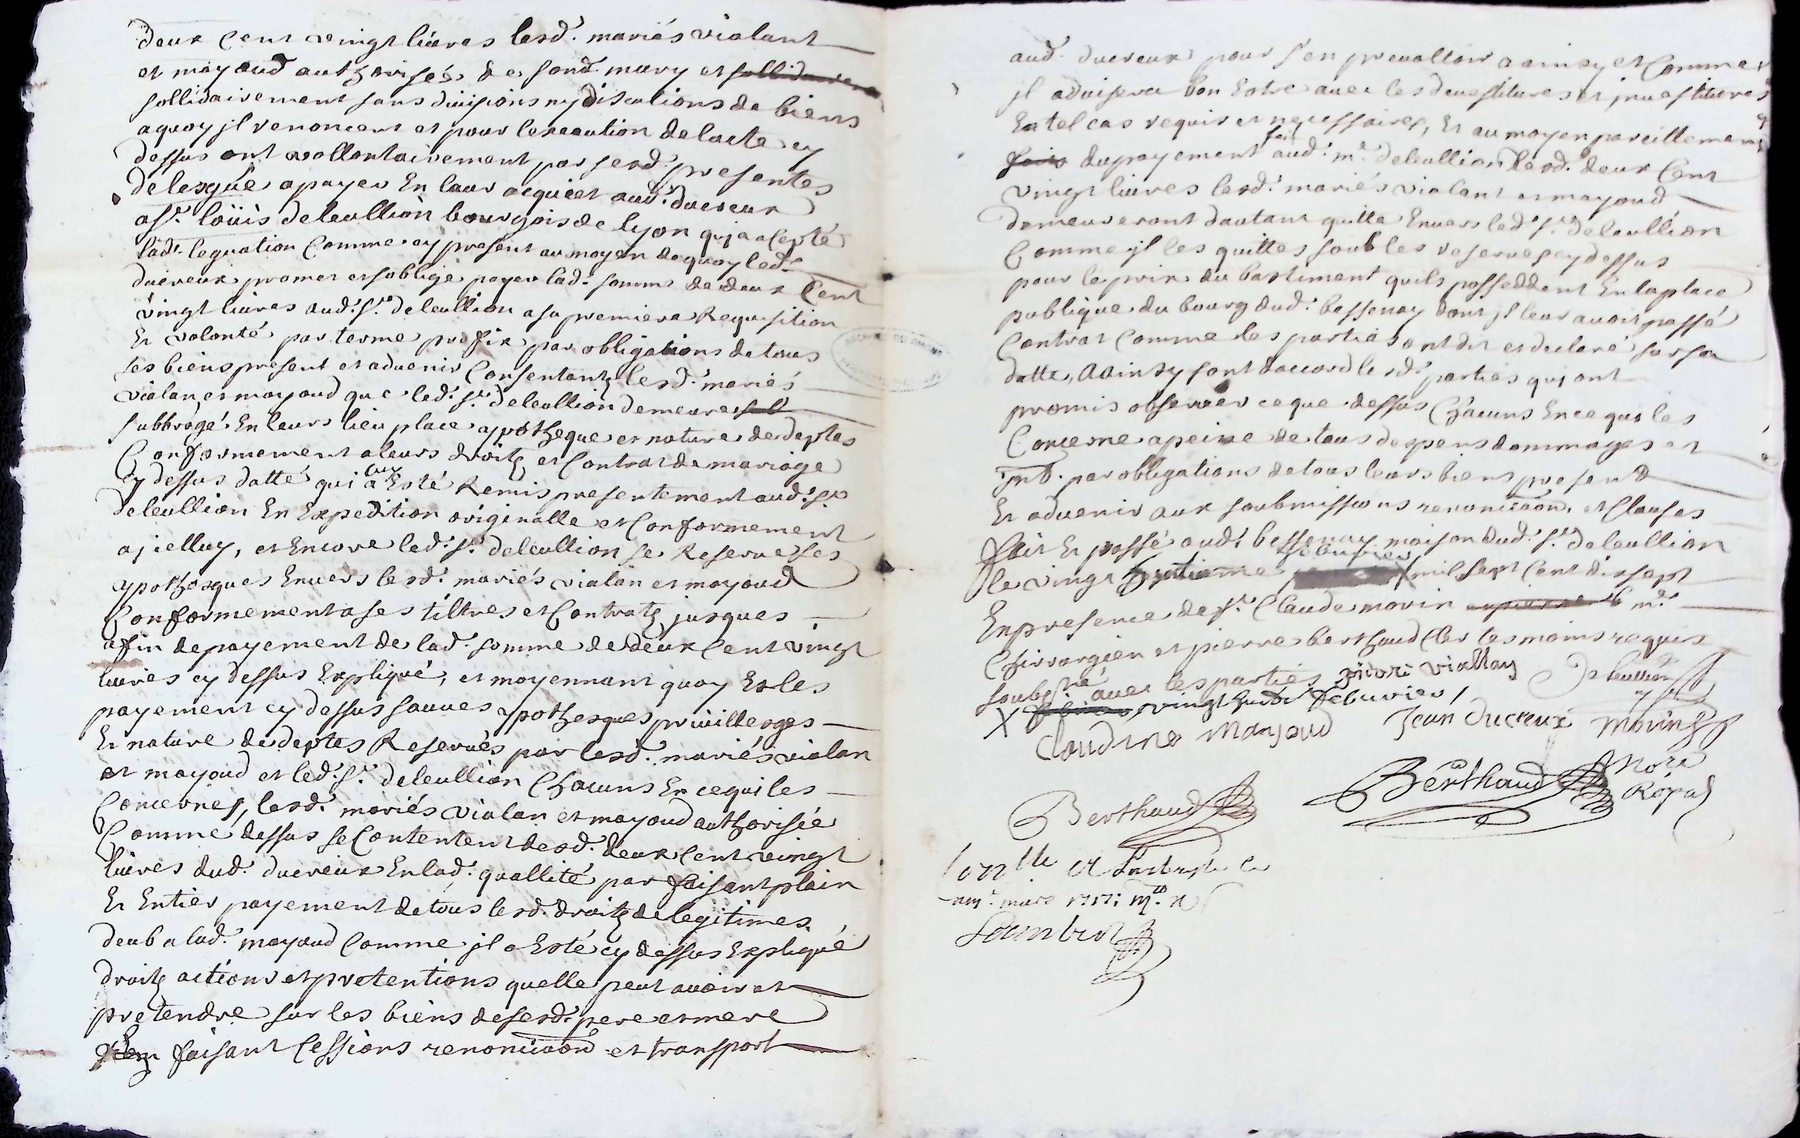 deux cent vingt livres lesd. mariés vialant
et mayoud authorisée de sond. mary et sollidaire
sollidairement sans divisions ny discutions de biens
aquoy jl renoncent et pour lexecution de lacte cy
dessus ont vollontairement par sesd. presentes
delesgué apayer En leur acquiet aud. ducreux
a sr. loüis deleullion bourgois de lyon quj a acepté
lad. leguation Comme cy présent au moyen dequoy led.
ducreux promet et soblige payer lad. somme de deux Cent
vingt livres aud. sr. deleullion a sa premiere Requisition
Et volonté par terme prefix par obligations de tous
ses biens present et advenir Consentant lesd. mariés
vialan et mayoud que led. sr. deleullion demeure sub
subbrogé En leurs lieu place ypotheque et nature de deptes
Conformement a leurs droitz et Contrat de mariage
Cy dessus datté qui a aux Esté Remis presentement aud. sr.
Deleullion En Expedition originalle et Conformement
a jcelluy, et Encore led. sr. deleullion se Reserve ses
ypotheques Envers lesd. mariés vialan et mayoud
Conformement a ses tiltres et Contratz jusques
afin depayement de lad. somme de deux Cent vingt
livres cy dessus Expliqué, et moyennant quoy Et les
payement cy dessus sauves ypotheques privilleges
Et nature de deptes Reservés par lesd. mariés vialan
et mayoud et led. sr. deleullion Chacuns En cequi les
Concernes, lesd. mariés vialan et mayoud authorisée
Comme dessus se Contentent desd. deux Cent vingt
livres dud. ducreux En lad. quallité par faisant plain
Et Entier payement de tous lesd. droitz de legitimes
deub a lad. mayoud Comme jl a Esté cy dessus Expliqué
droitz actions et pretentions quelle peut avoir et
pretendre sur les biens desesd. pere et mere
faisant Cessions renonciaon et transport
aud. ducreux pour sen prevalloir aainsy et Comme
jl advisera bon Estre avec les devestitures et jnvestitures
En tel cas requis et necessaires, Et au moyen pareillement
fait dupayement aud. mr. deleullion desd. deux Cent
vingt livres lesd. mariés vialant et mayoud
demeureront dautant quitte Envers led. sr. deleullion
Comme jl les quittes soub les reserves cy dessus
pour le prix du bastiment quils possedent En la place
publique du bourg dud. bessenay dont jl leur avoit passé
Contrat Comme les parties ont dit et declaré sur sa
datte, Aainsy sont daccord lesd. parties quj ont
promis observer ceque dessus Chacuns En ce qui les
Concerne apeine de tous depens dommages et
jnt. par obligations de tous leurs biens present
Et advenir aux soubmissions renonciaon, et Clauses
fait Et passé aud. bessenay maison dud. sr. deleullion
le vingt huitieme febvrier mil sept Cent dix sept
En presence de sr. Claude morin md.
Chirorgien et pierre berthaud Cler tesmoins requis
soubsné avec les parties pierre viallan Deleullion
X vingt huit febvrier /
Claudine Mayoud Jean Ducreux Morin
Berthaud Berthaud Nore Royal
Lambert